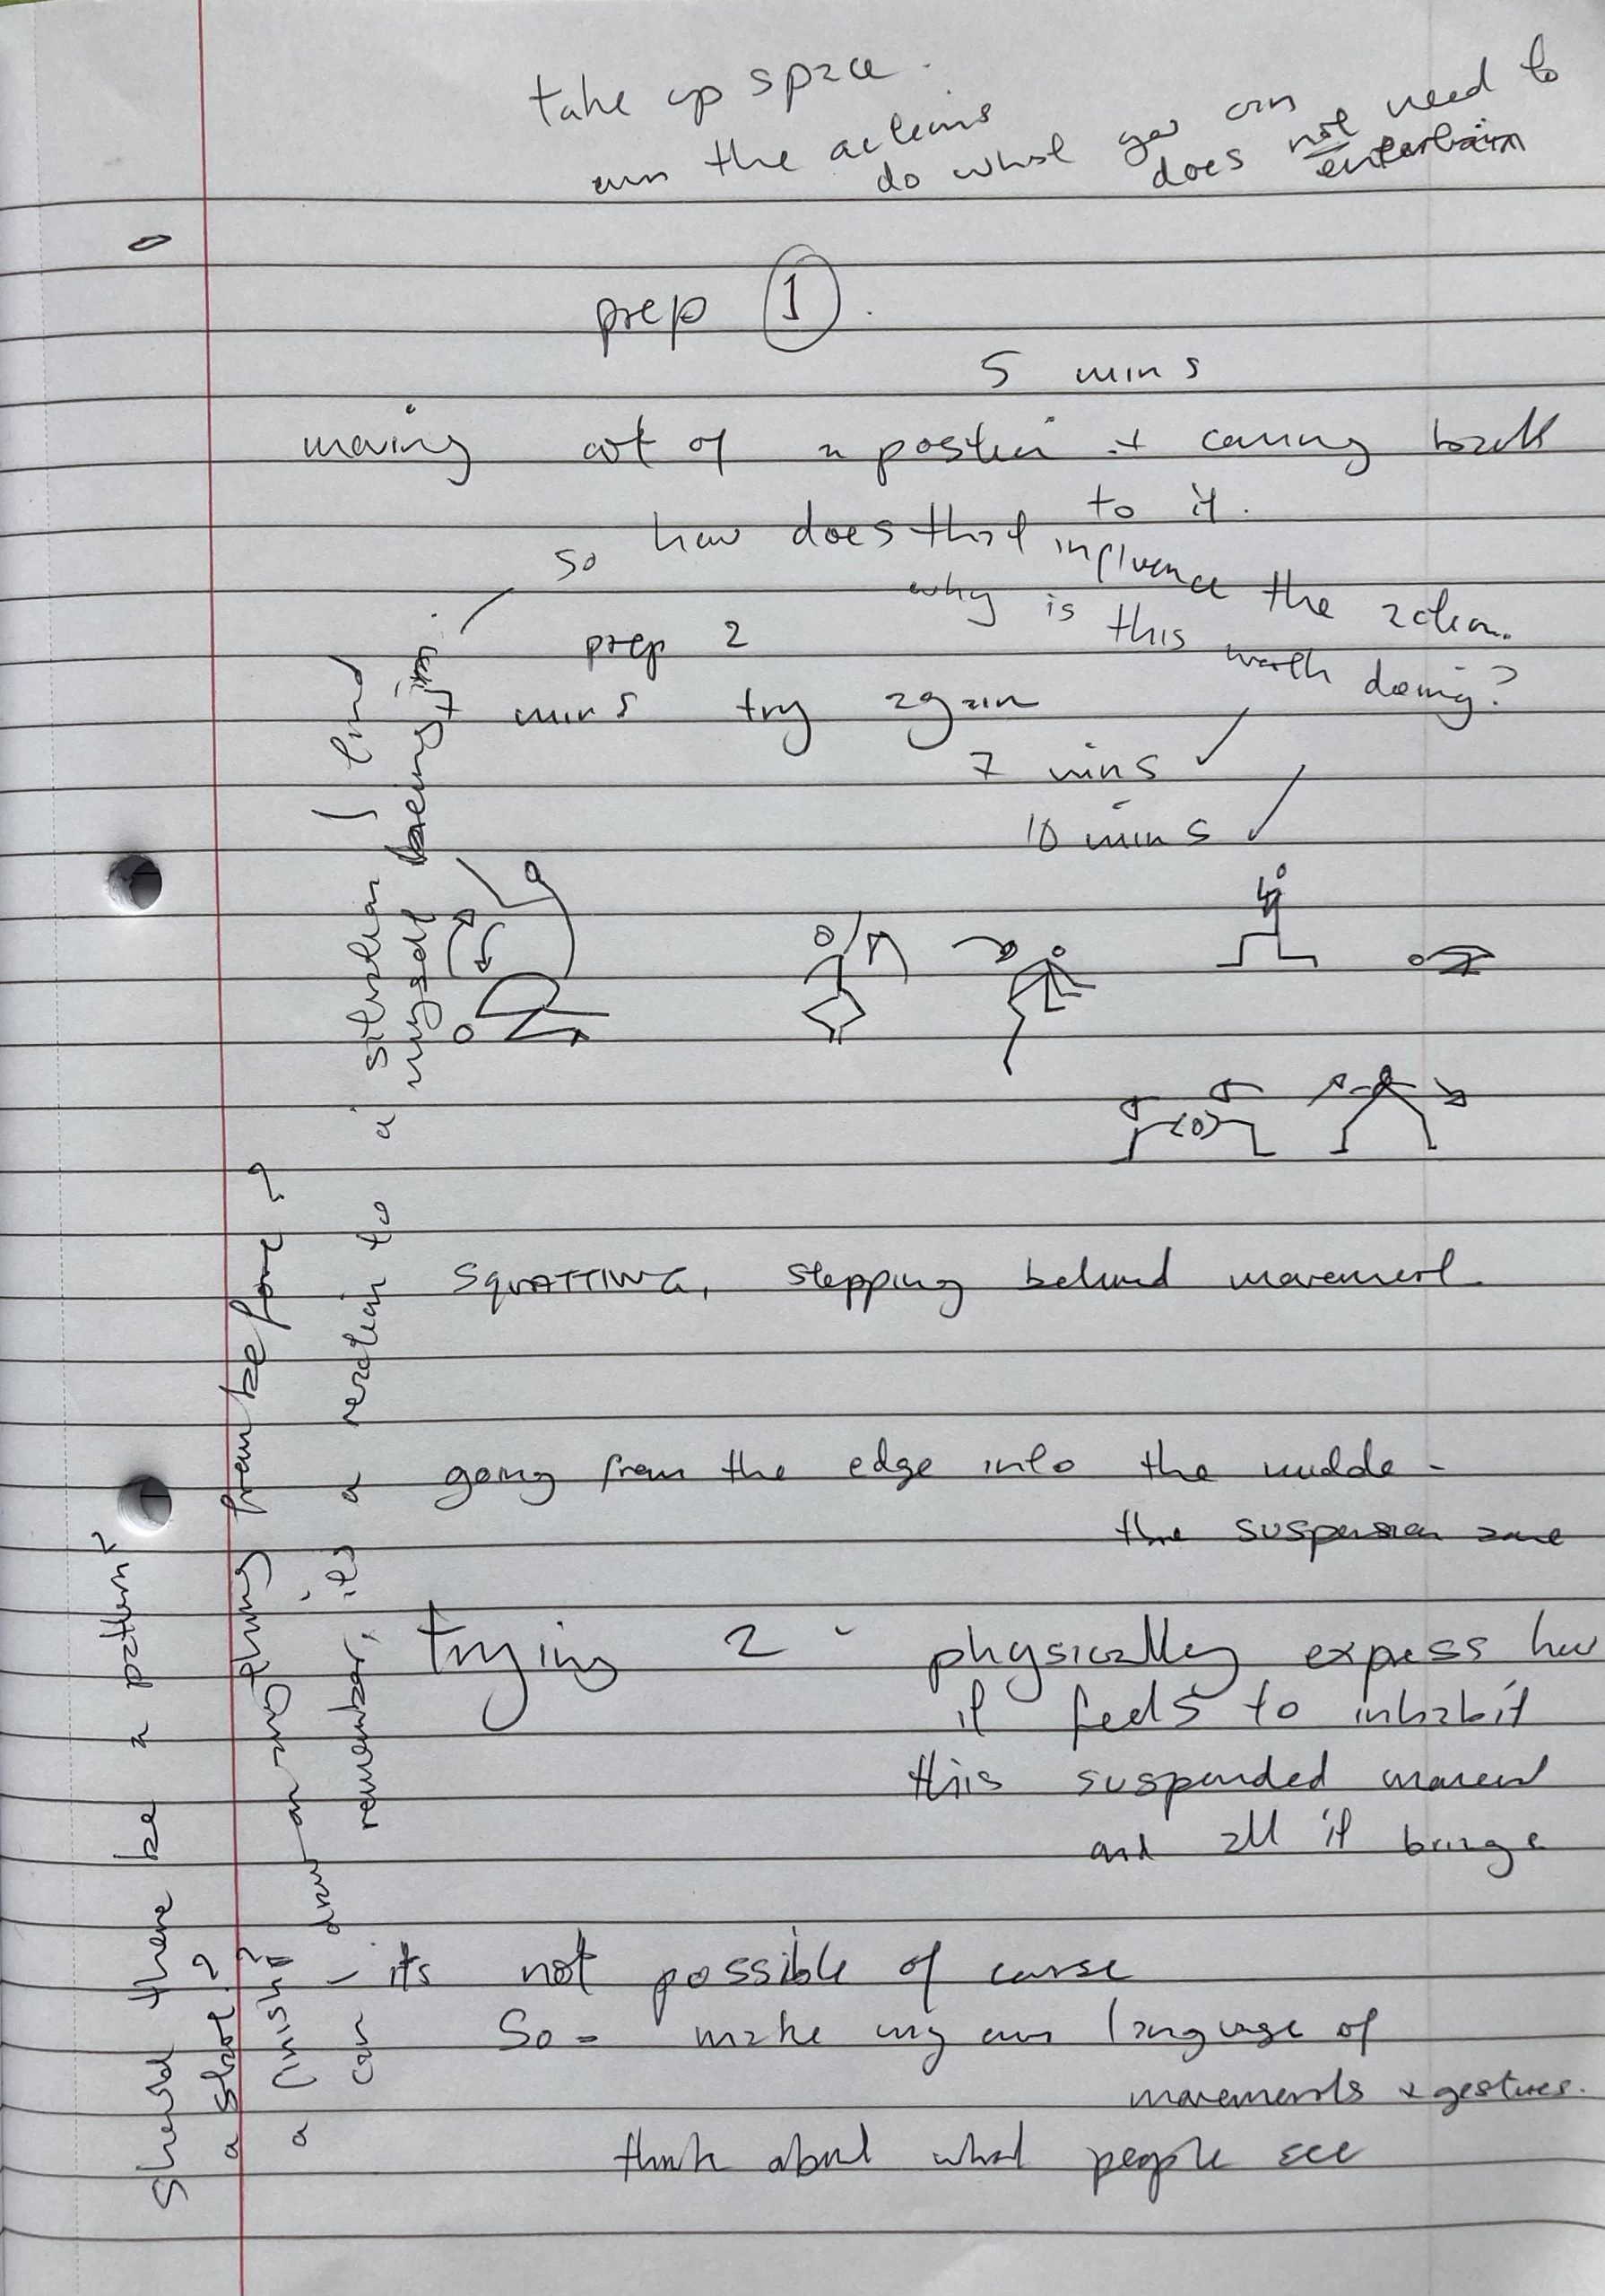 take up space.
own the actions
do what you can
does not need to
entertain
prep 1.
5 mins
moving out of a position + coming back
to it.
so how does that influence the action.
why is this worth doing?
prep 2
mins try again
7 mins ✓
10 mins ✓
SQUATTING, stepping behind movement.
going from the edge into the middle -
the suspension zone
trying 2 - physically express how
it feels to inhabit
this suspended moment
and all it brings
- its not possible of course
So - make my own language of
movements + gestures.
think about what people see
Should there be a pattern?
a start?
a finish?
draw on anything from before?
can remember, its a reaction to a situation I find
myself being in.